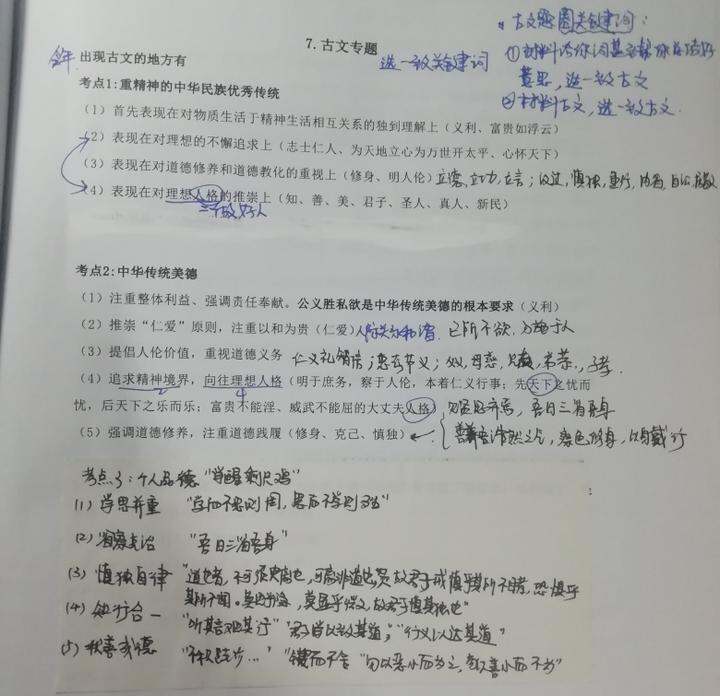 古文题圈关键词：
7. 古文专题
选一致关键词
①材料给你词甚至帮你总结好
出现古文的地方有
意思，选一致古文
考点1:重精神的中华民族优秀传统
②材料古文，选一致古文.
（1）首先表现在对物质生活于精神生活相互关系的独到理解上（义利、富贵如浮云）
（2）表现在对理想的不懈追求上（志士仁人、为天地立心为万世开太平、心怀天下）
（3）表现在对道德修养和道德教化的重视上（修身、明人伦）立德，立功，立言；慎独，
（4）表现在对理想人格的推崇上（知、善、美、君子、圣人、真人、新民）
考点2:中华传统美德
（1）注重整体利益、强调责任奉献。公义胜私欲是中华传统美德的根本要求（义利）
（2）推崇“仁爱”原则，注重以和为贵（仁爱）人际关系和谐 己所不欲，勿施于人
（3）提倡人伦价值，重视道德义务 仁义礼智信；父义，母慈，子孝
（4）追求精神境界，向往理想人格（明于庶务，察于人伦，本着仁义行事；先天下之忧而
忧，后天下之乐而乐；富贵不能淫、威武不能屈的大丈夫人格）见贤思齐焉，吾日三省吾身
（5）强调道德修养，注重道德践履（修身、克己、慎独）
考点3：个人品德
(1) 学思并重 “学而不思则罔，思而不学则殆”
(2) 省察克治 “吾日三省吾身”
(3) 慎独自律 “道也者，不可须臾离也，可离非道也。是故君子戒慎乎其所不睹，恐惧乎
其所不闻。莫见乎隐，莫显乎微，故君子慎其独也”
(4) 知行合一 “听其言观其行” “行义以达其道”
(5) 积善成德 “不积跬步…” “锲而不舍” “勿以恶小而为之，勿以善小而不为”